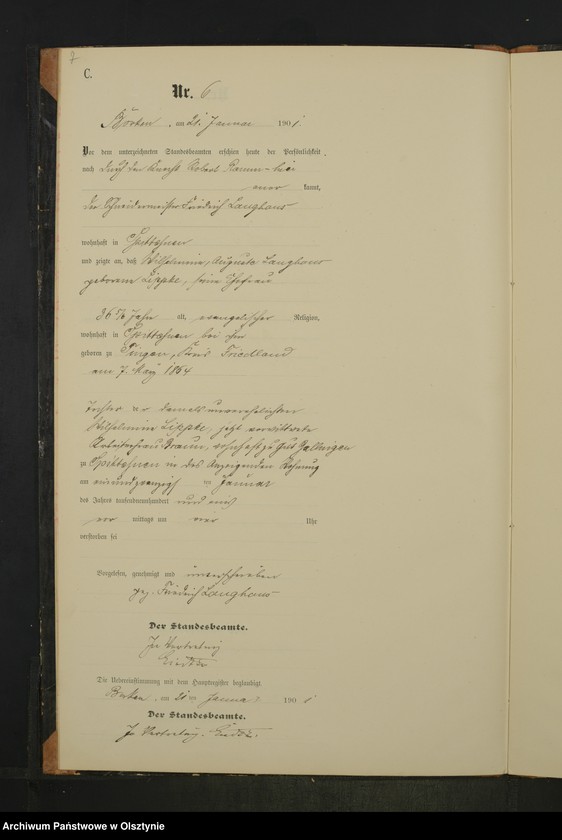 C.
Nr. 6
Borken, am 21. Januar 1901.
Vor dem unterzeichneten Standesbeamten erschien heute der Persönlichkeit
nach durch den Knecht Robert
kannt,
der Schneidermeister Friedrich Langhans
wohnhaft in
und zeigte an, daß Wilhelmine, Auguste Langhans
geborene Lippke, seine Ehefrau
36 ¾ Jahre alt, evangelischer Religion,
wohnhaft in bei ihm
geboren zu Kreis Friedland
am 7. 1864
Tochter der damals unverehelichten
Wilhelmine Lippke, jetzt verwittwete
Arbeiterfrau wohnhaft zu Gut
zu in des Anzeigenden Wohnung
am einundzwanzigsten Januar
des Jahres tausendneunhundert und eins
vor mittags um vier Uhr
verstorben sei
Vorgelesen, genehmigt und unterschrieben
gez. Friedrich Langhans
Der Standesbeamte.
In Vertretung
Die Uebereinstimmung mit dem Hauptregister beglaubigt.
Borken, am 21. Januar 1901
Der Standesbeamte.
In Vertretung.
Archiwum Państwowe w Olsztynie